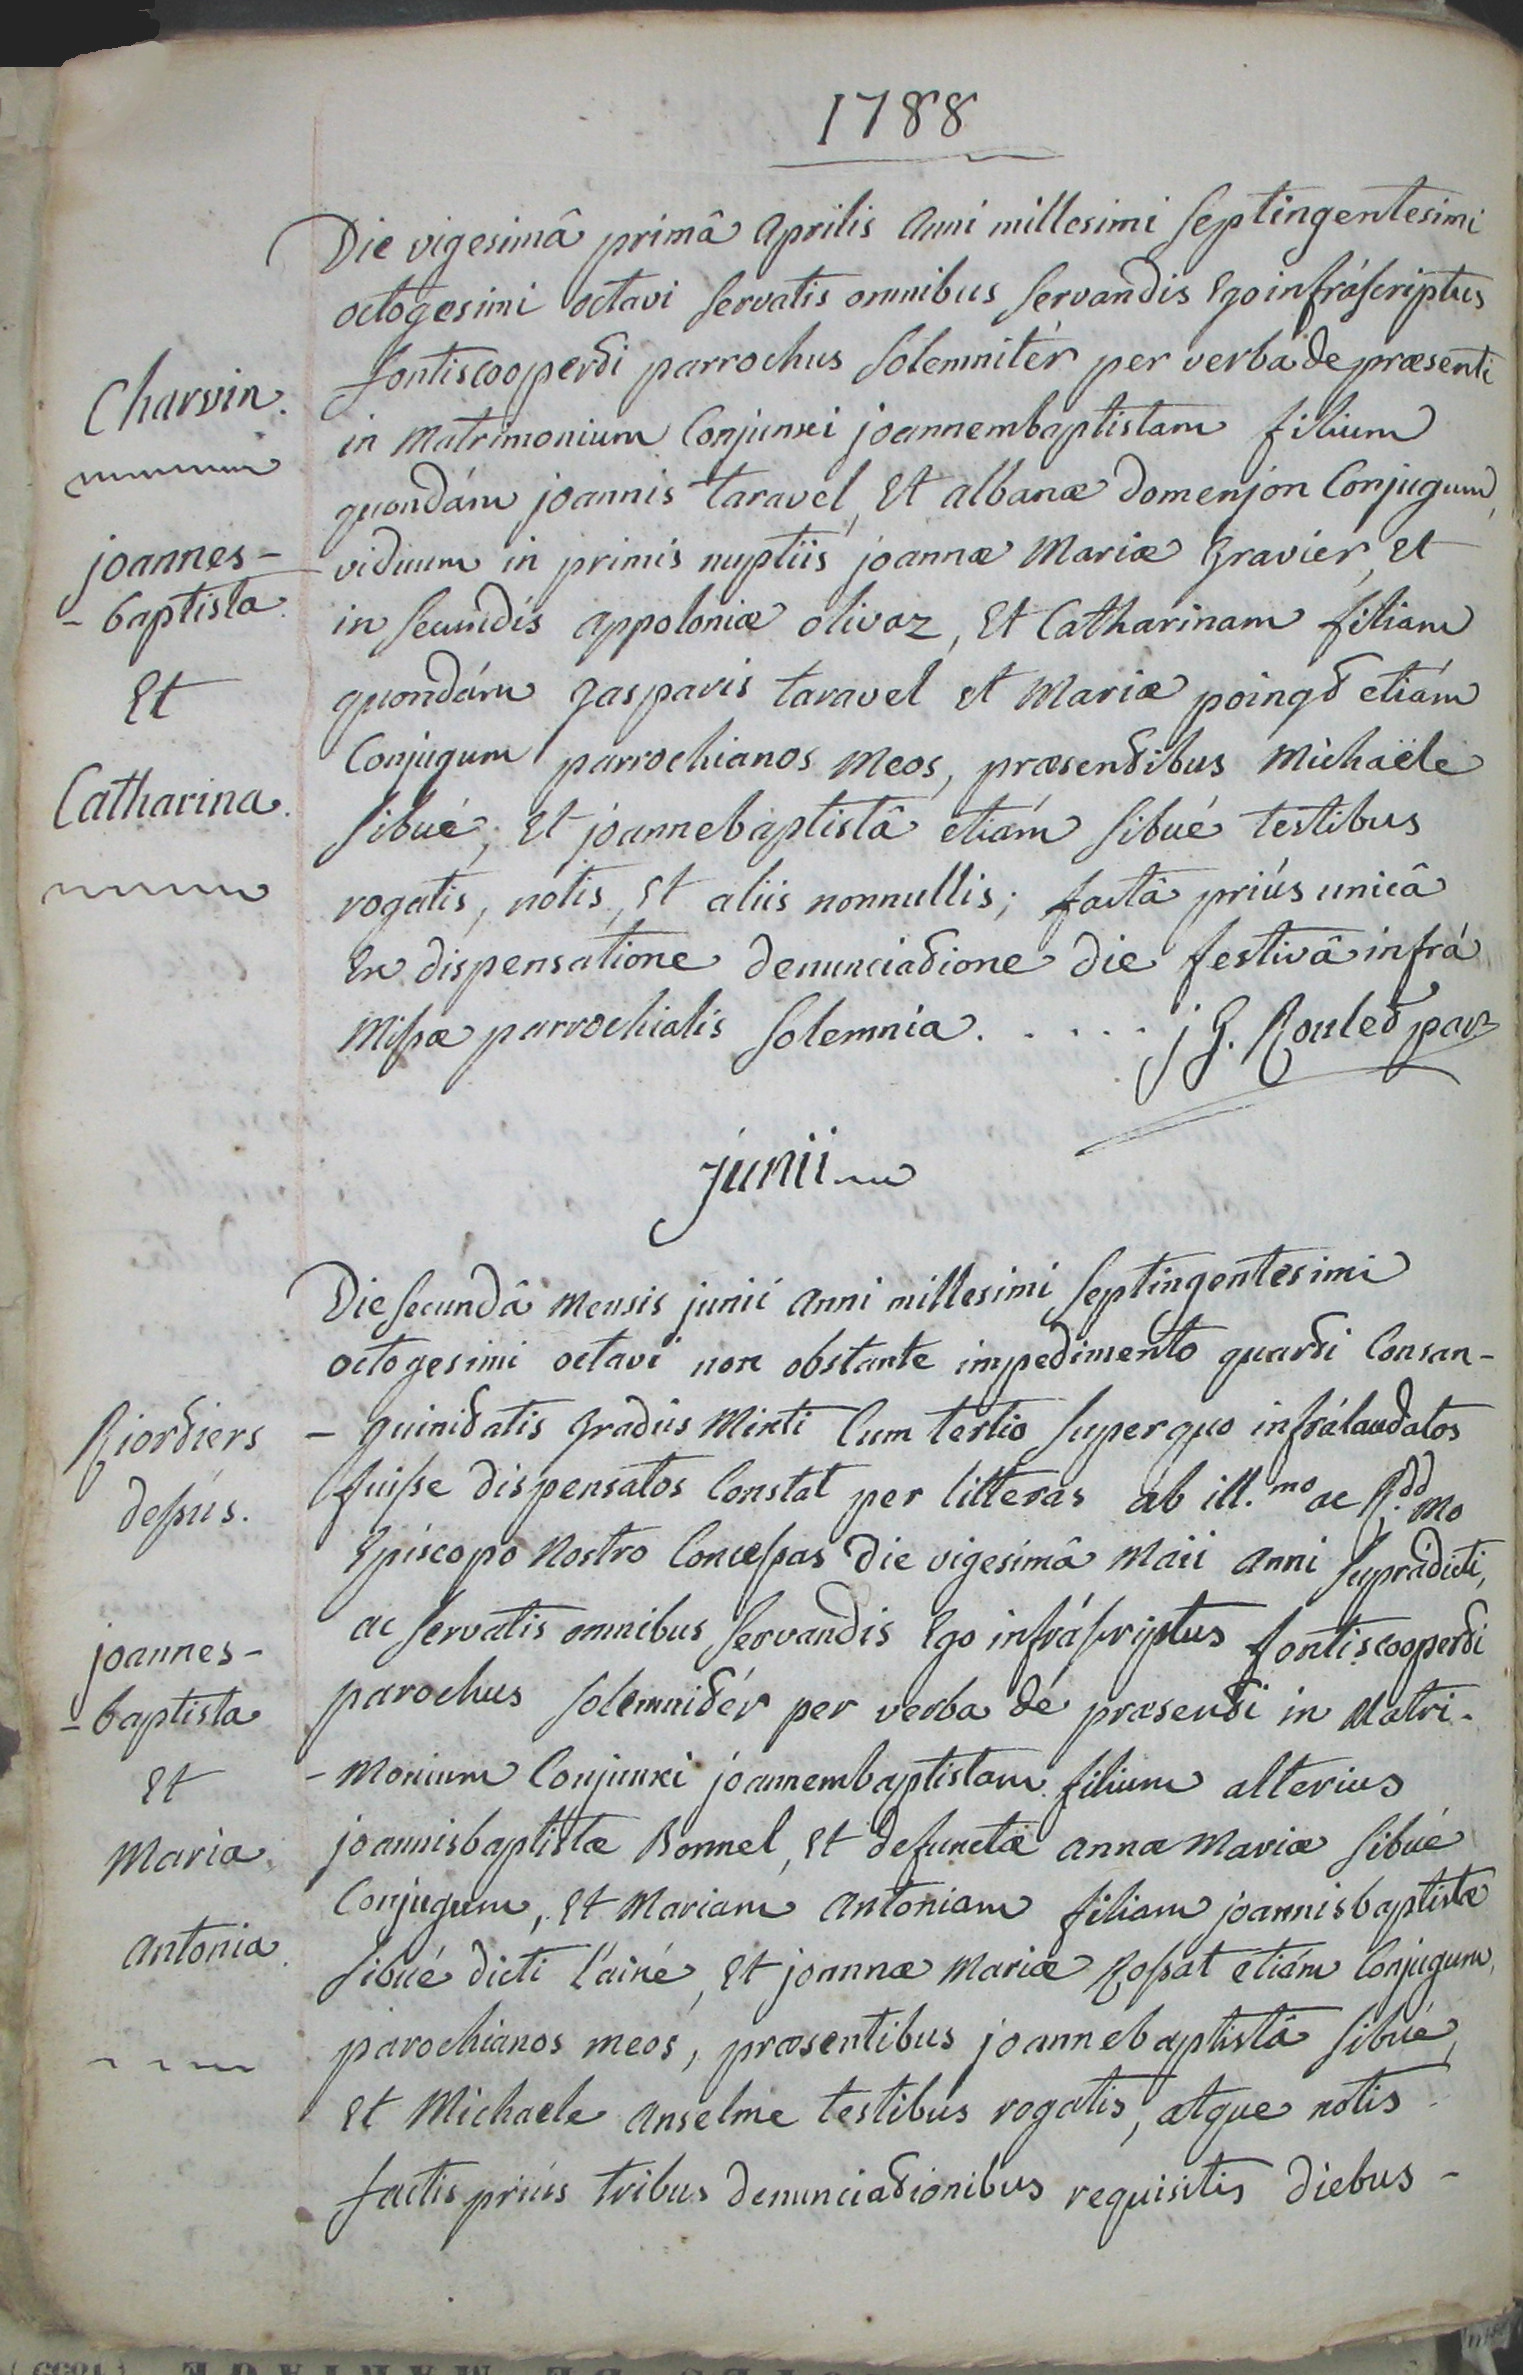 1788
Die vigesimâ primâ aprilis anni millesimi septingentesimi
octogesimi octavi servatis omnibus servandis Ego infráscriptus
fontiscooperti parrochus solemnitér per verba de præsenti
Charvin.
in Matrimonium Conjunxi joannembaptistam filium
quondám joannis taravel, Et albanæ domenjon Conjugum,
joannes-
-baptista.
viduum in primis nuptiis joannæ Mariæ gravier, Et
in secundis appoloniæ olivaz, Et Catharinam filiam
Et
quondám gasparis taravel et Mariæ poingt etiám
Conjugum parrochianos meos, præsentibus Michaële
Catharina.
sibué, Et joannebaptistâ etiám sibué testibus
rogatis, notis, Et aliis nonnullis; factâ priús unicâ
Ex dispensatione denunciatione die festivâ infrá
Missæ parrochialis solemnia. . . . . j G. Roulet par
junii
Die secundâ mensis junii anni millesimi septingentesimi
octogesimi octavi non obstante impedimento quarti Consan-
Riortiers
dessús.
- guinitatis gradús Mixti Cum tertio super quo infrálaudatos
fuisse dispensatos Constat per litteras ab ill.mo ac R.dd mo
Episcopo Nostro Concessas die vigesimâ Maii anni suprádicti,
ac servatis omnibus servandis Ego infráscriptus fontiscooperti
joannes-
-baptista
Et
Maria
antonia.
parochus solemnitér per verba dé præsenti in Matri-
-monium Conjunxi joannembaptistam filium alterius
joannisbaptistæ Bonnel, Et defunctæ annæ Mariæ sibué
Conjugum, Et Mariam antoniam filiam joannisbaptistæ
sibué dicti l'ainé, Et joannæ Mariæ Rossat etiám Conjugum,
parochianos meos, præsentibus joannebaptistâ sibué,
Et Michaele anselme testibus rogatis, atque notis
factis priús tribus denunciationibus requisitis diebus-